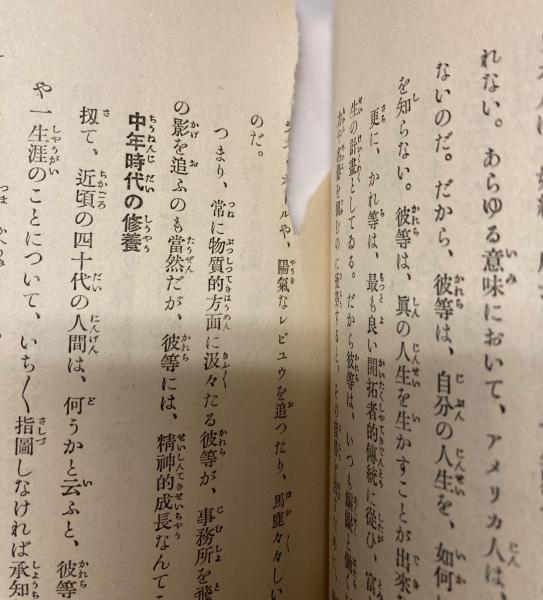 れない。あらゆる意味において、アメリカ人は、
ないのだ。だから、彼等は、自分の人生を、如何
を知らない。彼等は、眞の人生を生かすことが出來
更に、かれ等は、最も良い開拓者的傳統に從ひ、富
生の計畫としてゐる。だから彼等は、いつも
や、陽氣なレビユウを追つたり、馬鹿々々しい
のだ。
つまり、常に物質的方面に汲々たる彼等が、事務所を飛
の影を追ふのも當然だが、彼等には、精神的成長なんてこ
中年時代の修養
扨て、近頃の四十代の人間は、何うかと云ふと、彼等
や一生涯のことについて、いち〱指圖しなければ承知